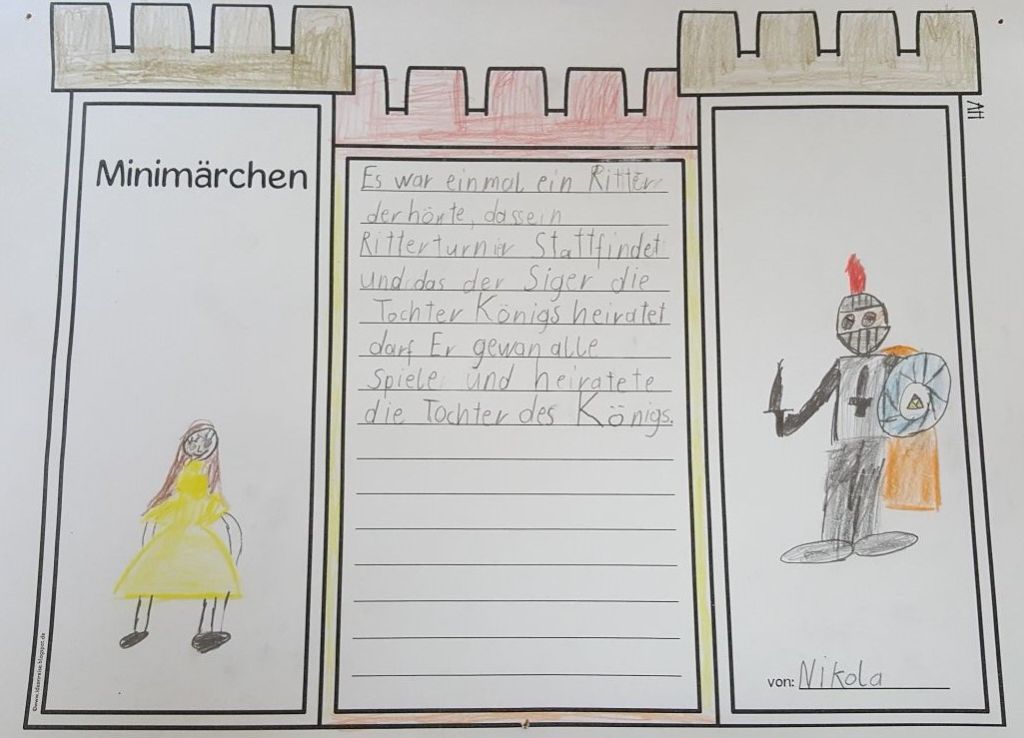 Minimärchen
Es war einmal ein Ritter
der hörte, dass ein
Ritterturnir Stattfindet
und das der Siger die
Tochter Königs heiratet
darf Er gewan alle
Spiele und heiratete
die Tochter des Königs.
von: Nikola
©www.ideenreise.blogspot.de